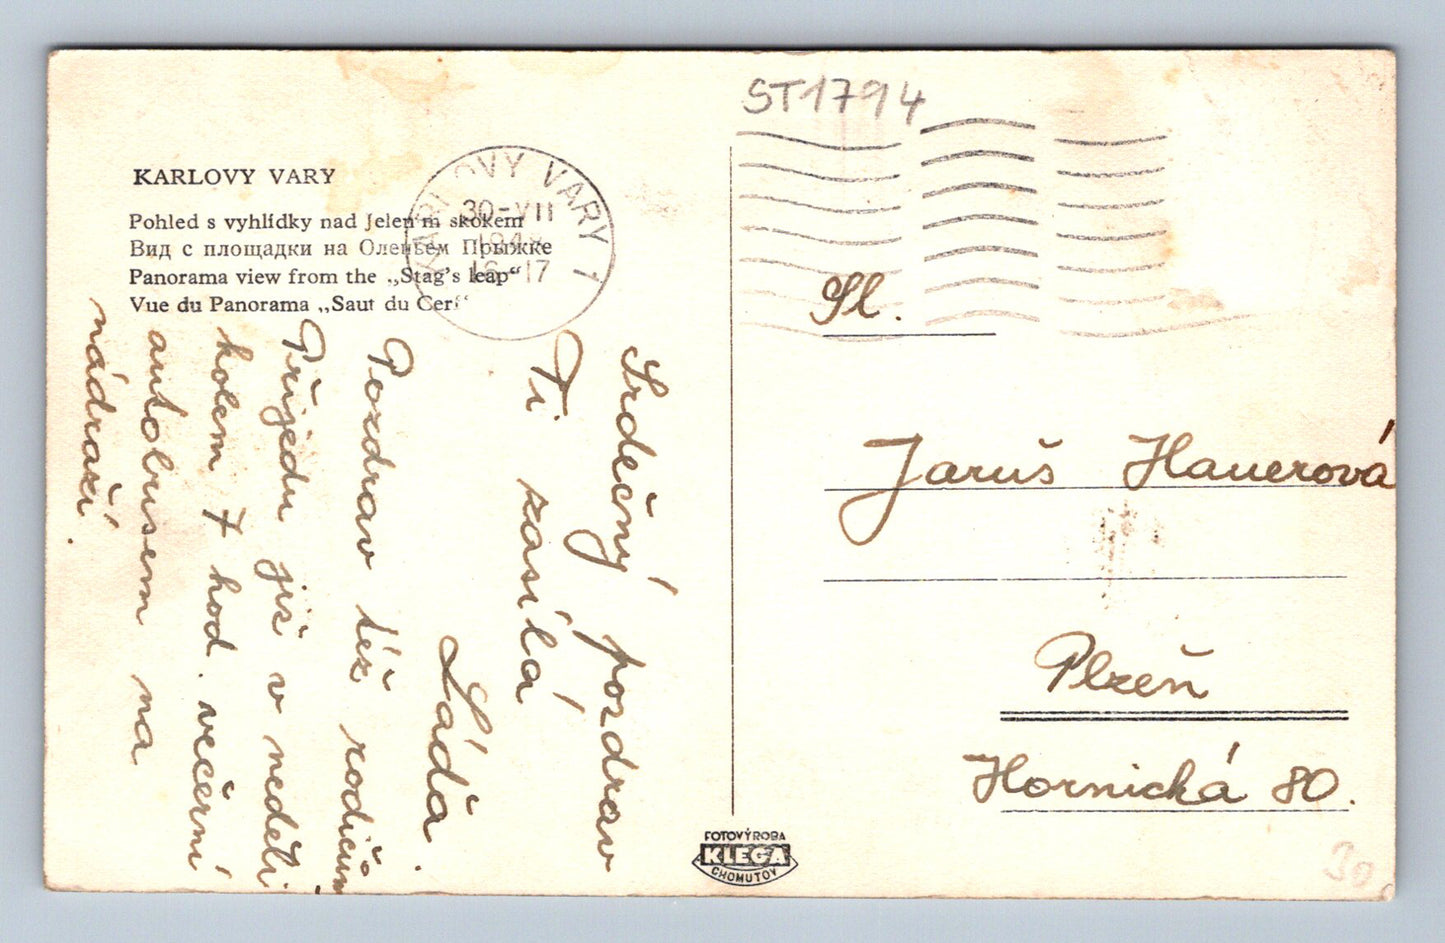 ST1794
KARLOVY VARY
Pohled s vyhlídky nad Jelen'm skokem
Вид с площадки на Оленьем Прыжке
Panorama view from the „Stag's leap“
Vue du Panorama „Saut du Cerf“
KARLOVY VARY 1
30-VII
16-17
Srdečný pozdrav
Ti zasílá
Láďa.
Pozdrav též rodičům
Přijedu již v neděli
kolem 7 hod. večerní
autobusem na
nádraží.
Sl.
Jaruš Hauerová
Plzeň
Hornická 80.
FOTOVÝROBA
KLEGA
CHOMUTOV
30,